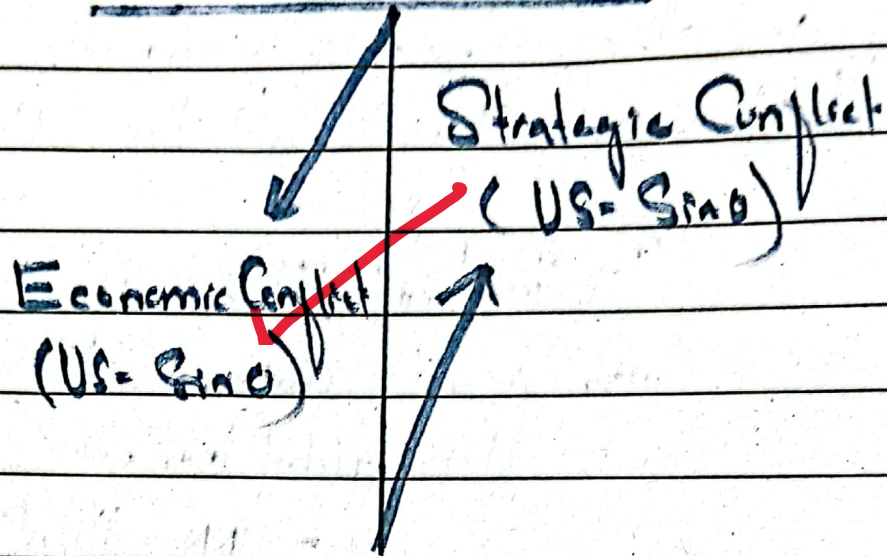 Strategic Conflict
(US- Sino)
Economic Conflict
(US- Sino)